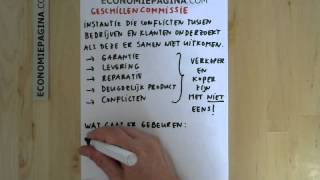 ECONOMIEPAGINA.COM
GESCHILLENCOMMISSIE
INSTANTIE DIE CONFLICTEN TUSSEN
BEDRIJVEN EN KLANTEN ONDERZOEKT
ALS DEZE ER SAMEN NIET UITKOMEN.
→ GARANTIE
→ LEVERING
→ REPARATIE
→ DEUGDELIJK PRODUCT
→ CONFLICTEN
VERKOPER
EN
KOPER
ZIJN
HET NIET
EENS!
WAT GAAT ER GEBEUREN:
ECONOMIEPAGINA.COM
ECONOMIEPAGINA.COM